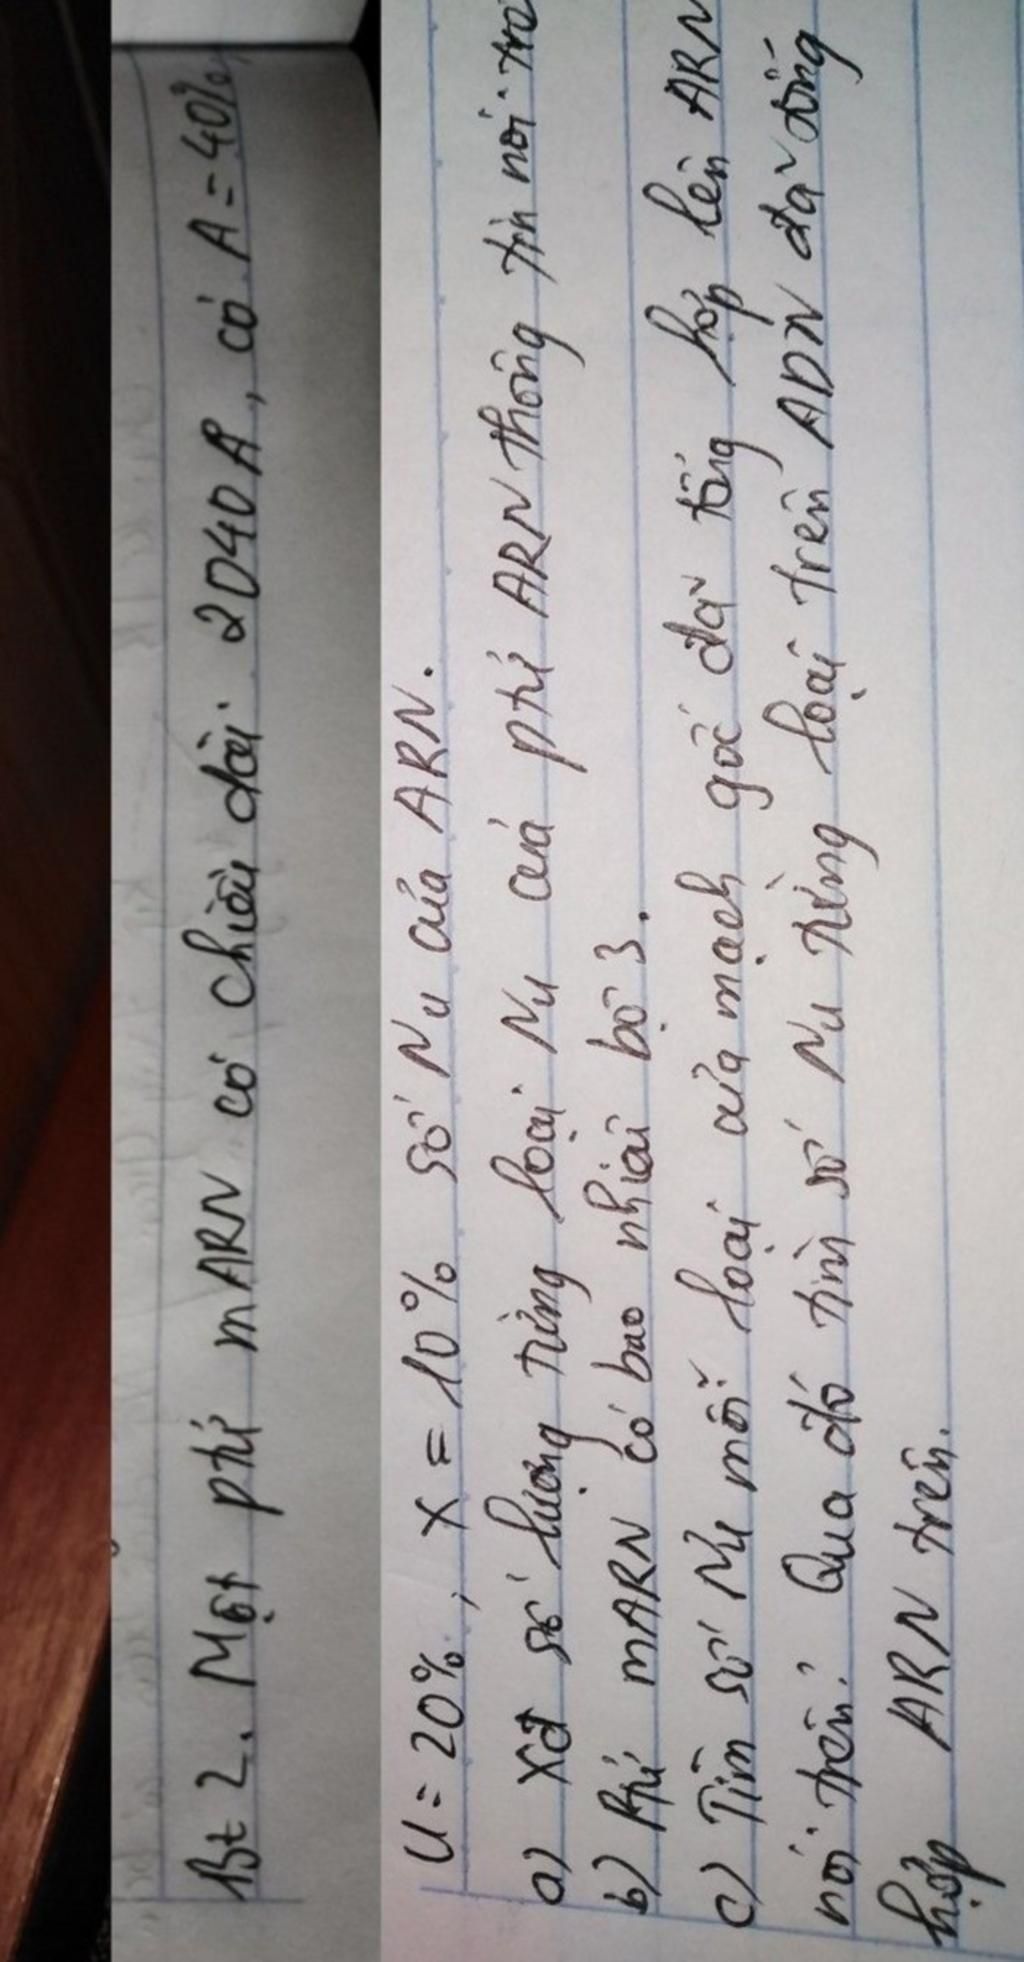 Bt 2. Một phí mARN có chiều dài 2040A, có A = 40%,
U = 20%, X = 10% số Nu của ARN.
a) Xđ số lượng từng loại Nu của phí ARN thông tin nói trê
b) Phí mARN có bao nhiêu bộ 3.
c) Tìm số Nu mỗi loại của mạch gốc đã tổng hợp lên ARN
nói trên. Qua đó tìm số Nu từng loại trên ADN đã tổng
hợp ARN trên.